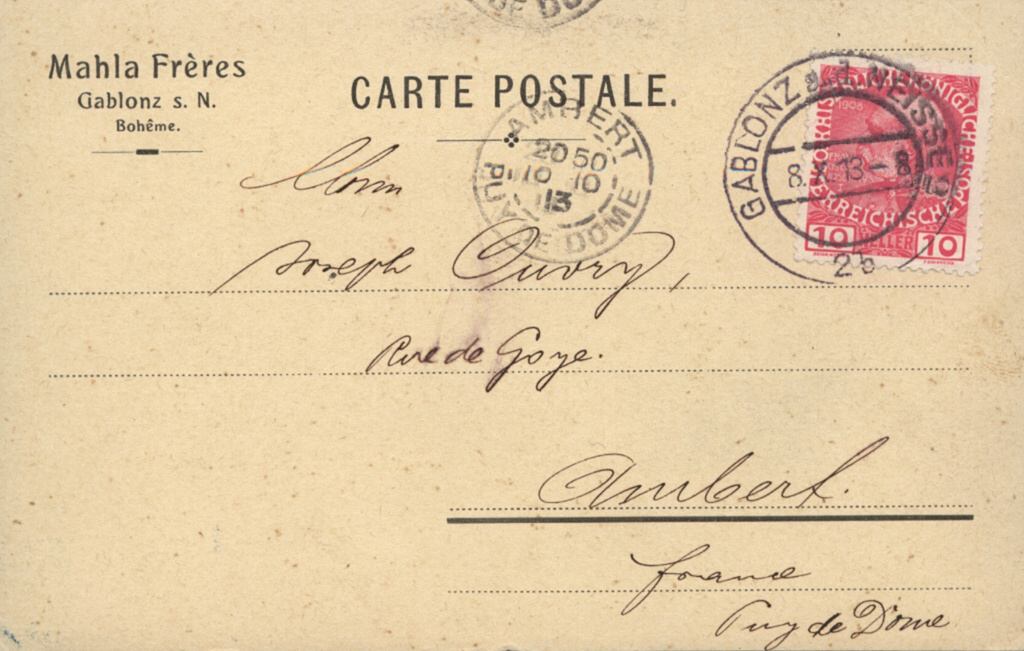 DE DO
Mahla Frères
Gablonz s. N.
Bohême.
CARTE POSTALE.
AMBERT
20 50
10 10
13
PUY DE DOME
GABLONZ a. d. NEISSE
8. X. 13 - 8
2b
1908
10 HELLER 10
Joseph Ouvry,
Rue de Goye.
Ambert.
france
Puy de Dome